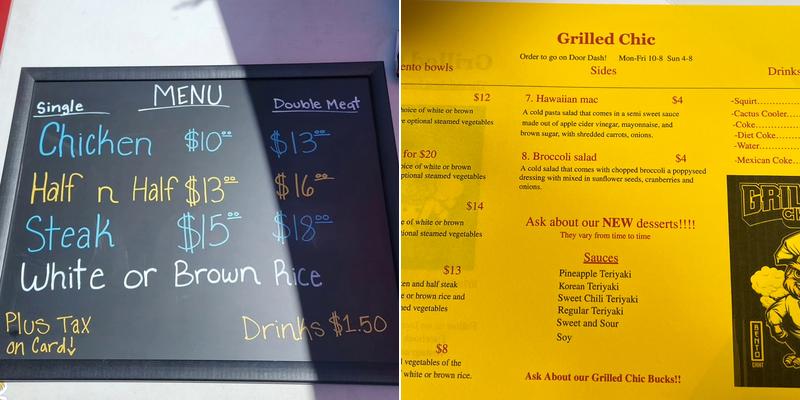 MENU
Single
Double Meat
Chicken $10.00 $13.00
Half n Half $13.00 $16.00
Steak $15.00 $18.00
White or Brown Rice
Plus Tax
on Card!
Drinks $1.50
Grilled Chic
Order to go on Door Dash! Mon-Fri 10-8 Sun 4-8
ento bowls
Sides
Drinks
$12
hoice of white or brown
e optional steamed vegetables
for $20
oice of white or brown
ptional steamed vegetables
$14
e of white or brown
tional steamed vegetables
$13
ken and half steak
e or brown rice and
ed vegetables
$8
l vegetables of the
white or brown rice.
7. Hawaiian mac $4
A cold pasta salad that comes in a semi sweet sauce
made out of apple cider vinegar, mayonnaise, and
brown sugar, with shredded carrots, onions.
8. Broccoli salad $4
A cold salad that comes with chopped broccoli a poppyseed
dressing with mixed in sunflower seeds, cranberries and
onions.
Ask about our NEW desserts!!!!
They vary from time to time
Sauces
Pineapple Teriyaki
Korean Teriyaki
Sweet Chili Teriyaki
Regular Teriyaki
Sweet and Sour
Soy
Ask About our Grilled Chic Bucks!!
-Squirt............
-Cactus Cooler....
-Coke............
-Diet Coke........
-Water............
-Mexican Coke...
GRILL
BENTO